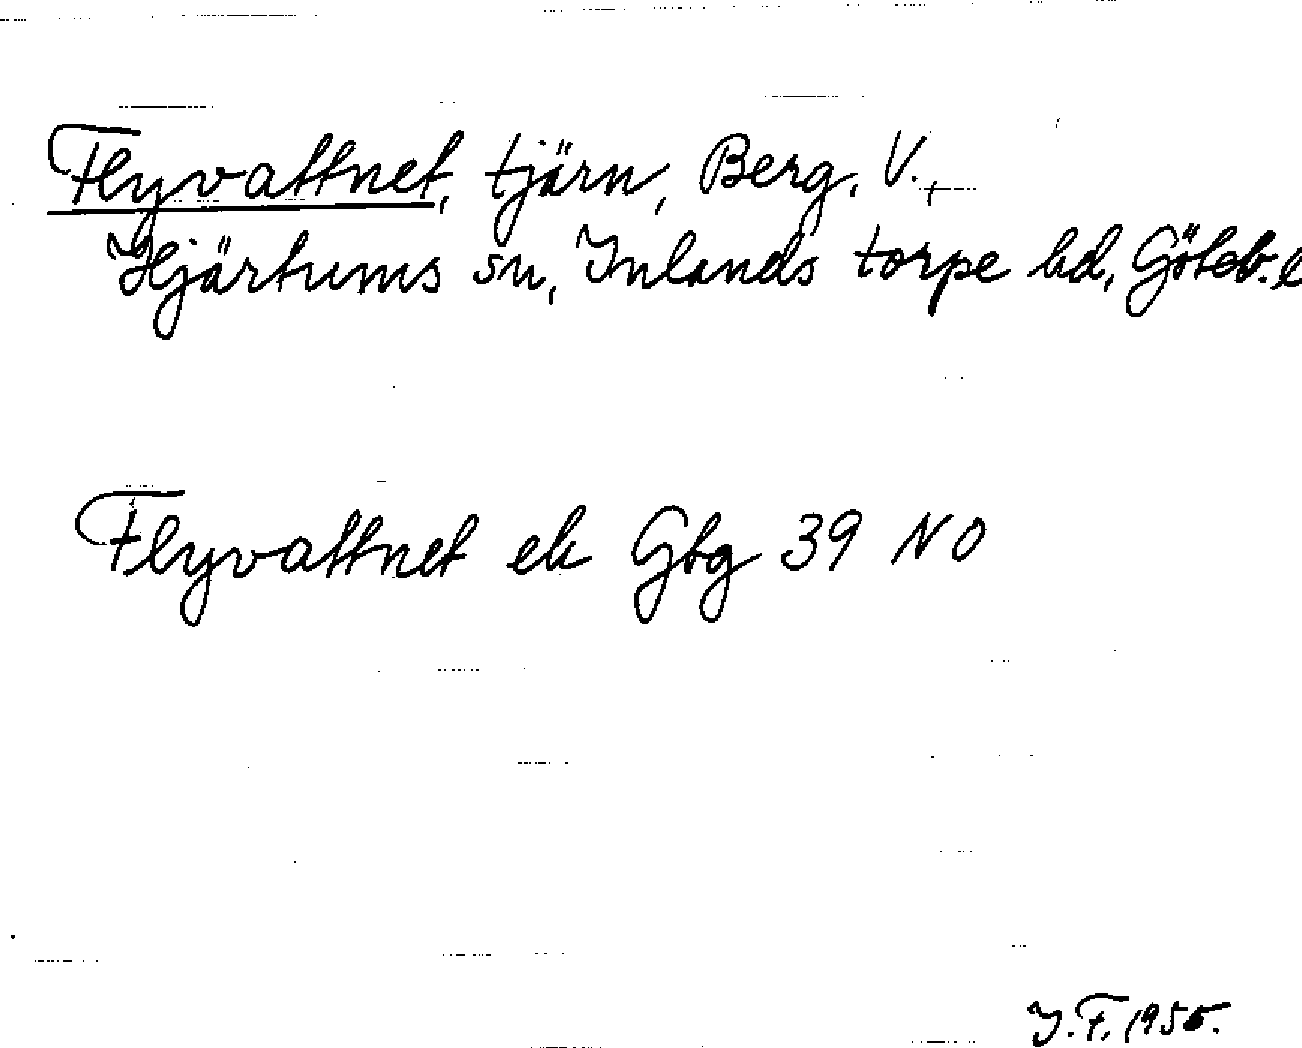 Flyvattnet, tjärn, Berg, V.,
Hjärtums sn, Inlands torpe hd, Göteb. l
Flyvattnet ek Gbg 39 NO
I. F. 1955.